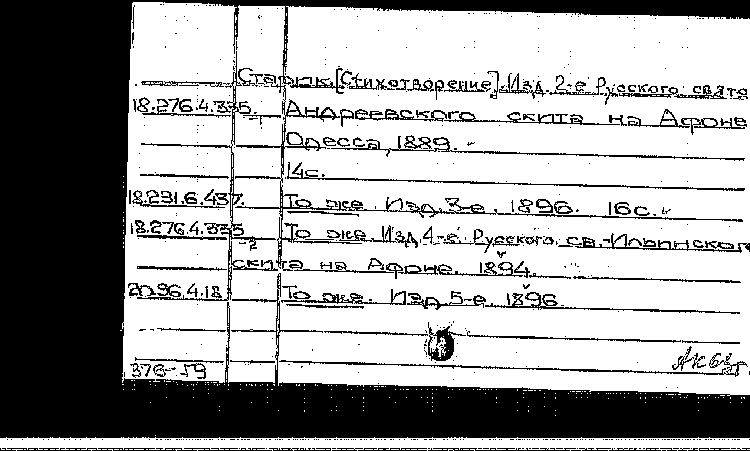 Старик. [Стихотворение]. Изд. 2-е Русского свято
18.276.4.335. Андреевского скита на Афоне
-1 Одесса, 1889.
14с.
18.231.6.437. То же. Изд. 3-е. 1896. 16с.
18.276.4.335 То же. Изд. 4-е Русского св.-Ильинского
-2 скита на Афоне. 1894.
20.96.4.18 То же. Изд. 5-е. 1896.
376-59